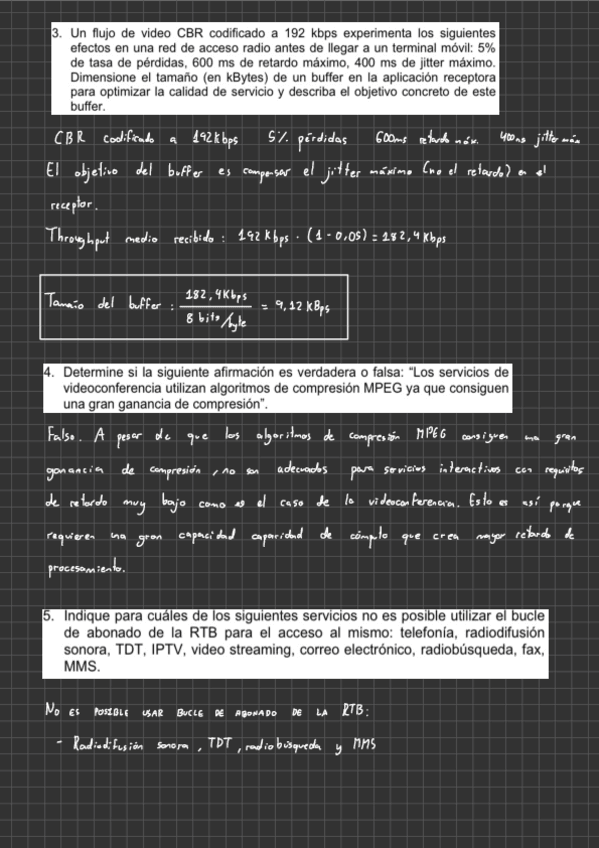 3. Un flujo de video CBR codificado a 192 kbps experimenta los siguientes
efectos en una red de acceso radio antes de llegar a un terminal móvil: 5%
de tasa de pérdidas, 600 ms de retardo máximo, 400 ms de jitter máximo.
Dimensione el tamaño (en kBytes) de un buffer en la aplicación receptora
para optimizar la calidad de servicio y describa el objetivo concreto de este
buffer.
CBR codificado a 192Kbps 5% pérdidas 600ms retardo máx. 400ms jitter máx
El objetivo del buffer es compensar el jitter máximo (no el retardo) en el
receptor.
Throughput medio recibido: 192 Kbps · (1 - 0,05) = 182,4 Kbps
Tamaño del buffer: 182,4Kbps / 8 bits/byte = 9,12 KBps
4. Determine si la siguiente afirmación es verdadera o falsa: “Los servicios de
videoconferencia utilizan algoritmos de compresión MPEG ya que consiguen
una gran ganancia de compresión”.
Falso. A pesar de que los algoritmos de compresión MPEG consiguen una gran
ganancia de compresión, no son adecuados para servicios interactivos con requisitos
de retardo muy bajo como es el caso de la videoconferencia. Esto es así porque
requieren una gran capacidad caparidad de cómputo que crea mayor retardo de
procesamiento.
5. Indique para cuáles de los siguientes servicios no es posible utilizar el bucle
de abonado de la RTB para el acceso al mismo: telefonía, radiodifusión
sonora, TDT, IPTV, video streaming, correo electrónico, radiobúsqueda, fax,
MMS.
NO ES POSIBLE USAR BUCLE DE ABONADO DE LA RTB:
- Radiodifusión sonora, TDT, radiobúsqueda y MMS